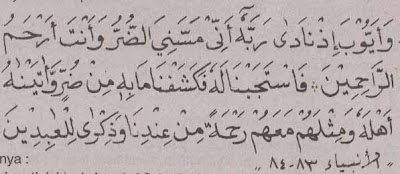 وَأَيُّوْبَ إِذْنَادٰى رَبَّهٗ أَنِّيْ مَسَّنِيَ الضُّرُّ وَأَنْتَ أَرْحَمُ
الرَّاحِمِيْنَ . فَاسْتَجَبْنَا لَهٗ فَكَشَفْنَا مَابِهٖ مِنْ ضُرٍّ وَّاٰتَيْنٰهُ
أَهْلَهٗ وَمِثْلَهُمْ مَعَهُمْ رَحْمَةً مِنْ عِنْدِنَا وَذِكْرٰى لِلْعٰبِدِيْنَ
"الأنبياء ٨٣-٨٤"
nya :